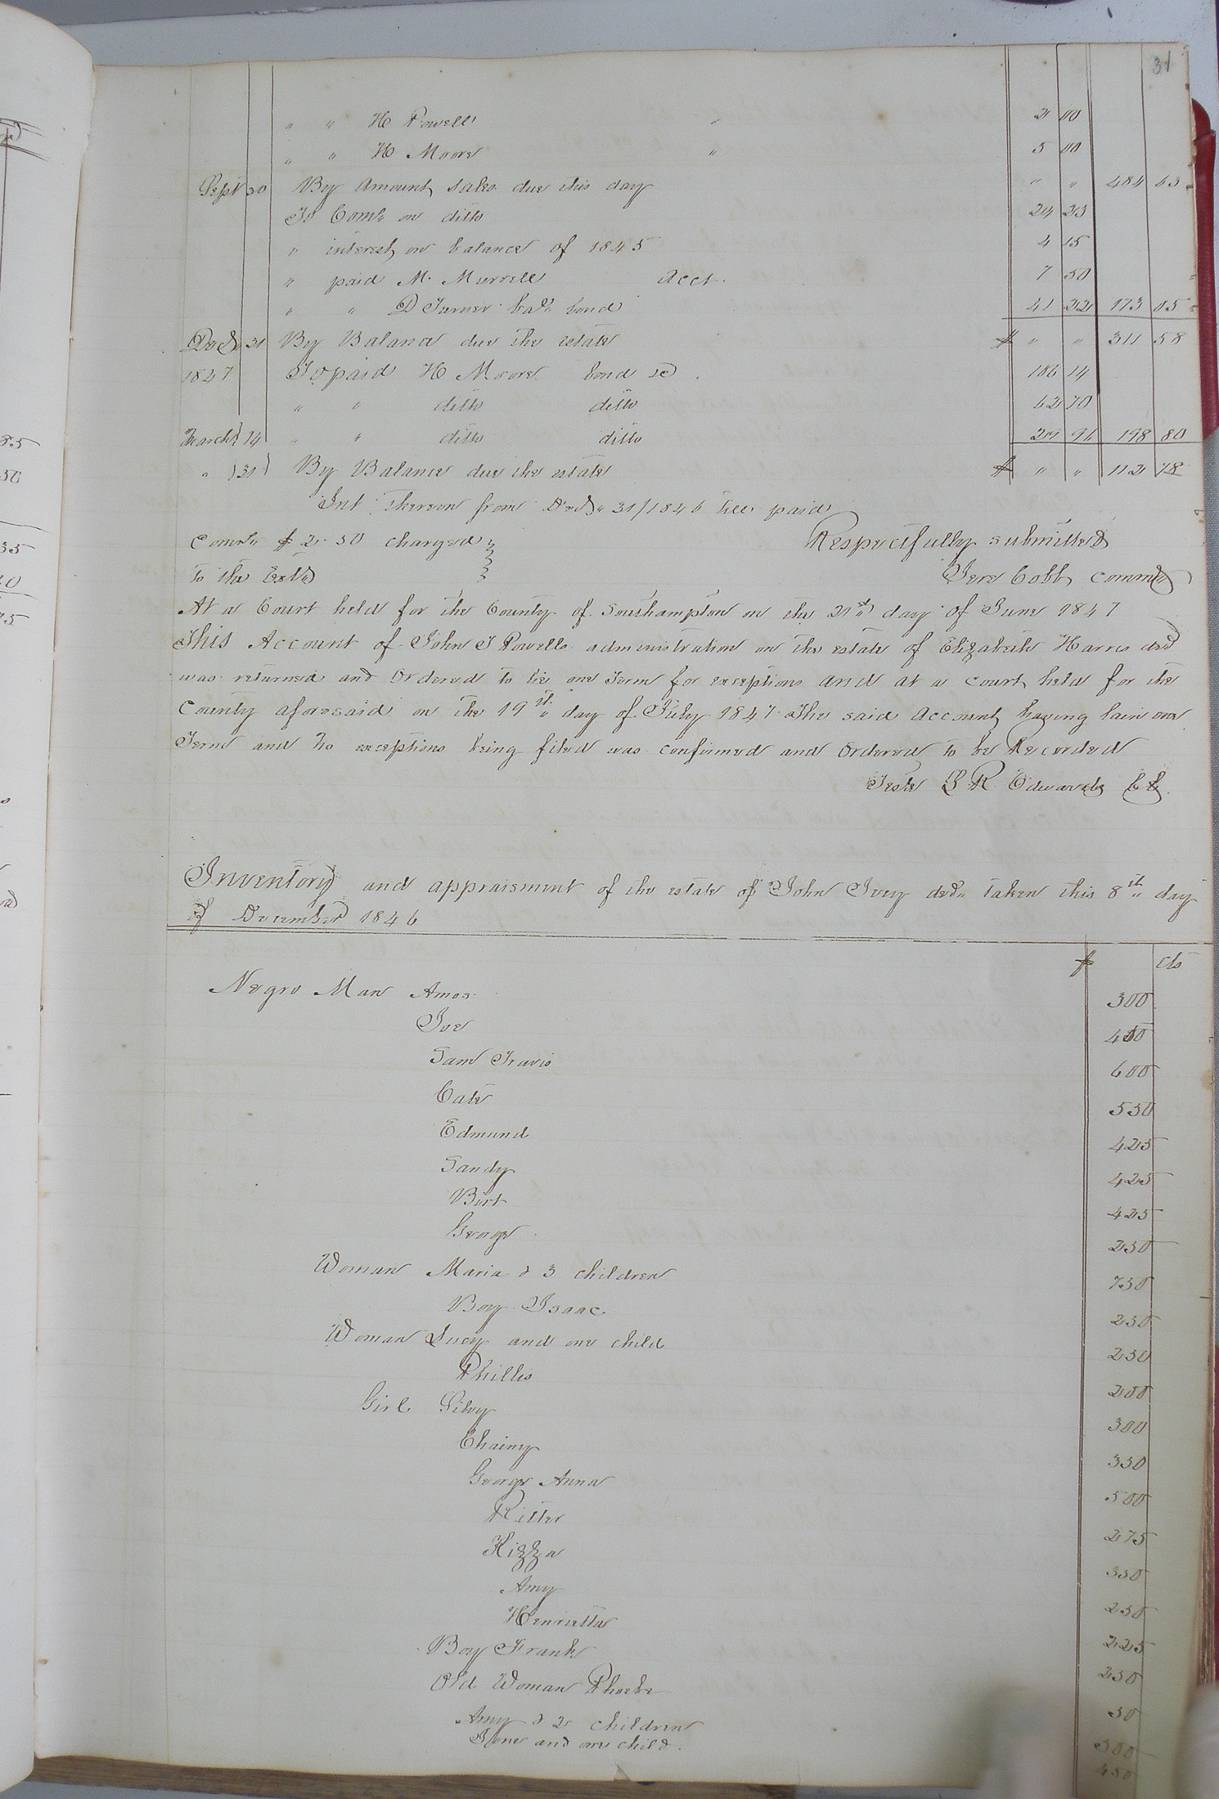 31
" " H Powell " 2 00
" " H Moore " 5 00
Sept 30 By Amount sales due this day " " 484 63
To Coms on ditto 24 23
" interest on balance of 1845 4 15
" paid M. Murrell Acct 7 50
" " D Turner bond 41 22 173 05
Decr 31 By Balance due the estate $ " " 311 58
1847 To paid H Moore bond 106 14
" " ditto ditto 62 70
March 14 " " ditto ditto 29 96 198 80
" 31 By Balance due the estate $ " " 112 78
Int thereon from Decr 31/1846 till paid
Coms $2.50 charged Respectfully submitted
to the Est Jere Cobb commr
At a Court held for the County of Southampton on the 21st day of June 1847
This Account of John T Powells administration on the estate of Elizabeth Harris decd
was returned and Ordered to lie one Term for exceptions and at a Court held for the
County aforesaid on the 19th day of July 1847 The said Account having lain one
Term and no exceptions being filed was confirmed and Ordered to be Recorded
Teste L R Edwards Ck
Inventory and appraisment of the estate of John Ivey decd taken this 8th day
of December 1846
$ cts
Negro Man Amos 300
Joe 400
Sam Travis 600
Cate 550
Edmund 425
Sandy 425
Bert 425
George 250
Woman Maria & 3 children 750
Boy Isaac 250
Woman Lucy and one child 250
Phillis 200
Girl Silvy 300
Chainy 350
George Anna 500
Ritter 275
Kizza 350
Amy 250
Henrietta 225
Boy Frank 250
Old Woman Phoebe 50
Amy & 2 children 500
and one child 450